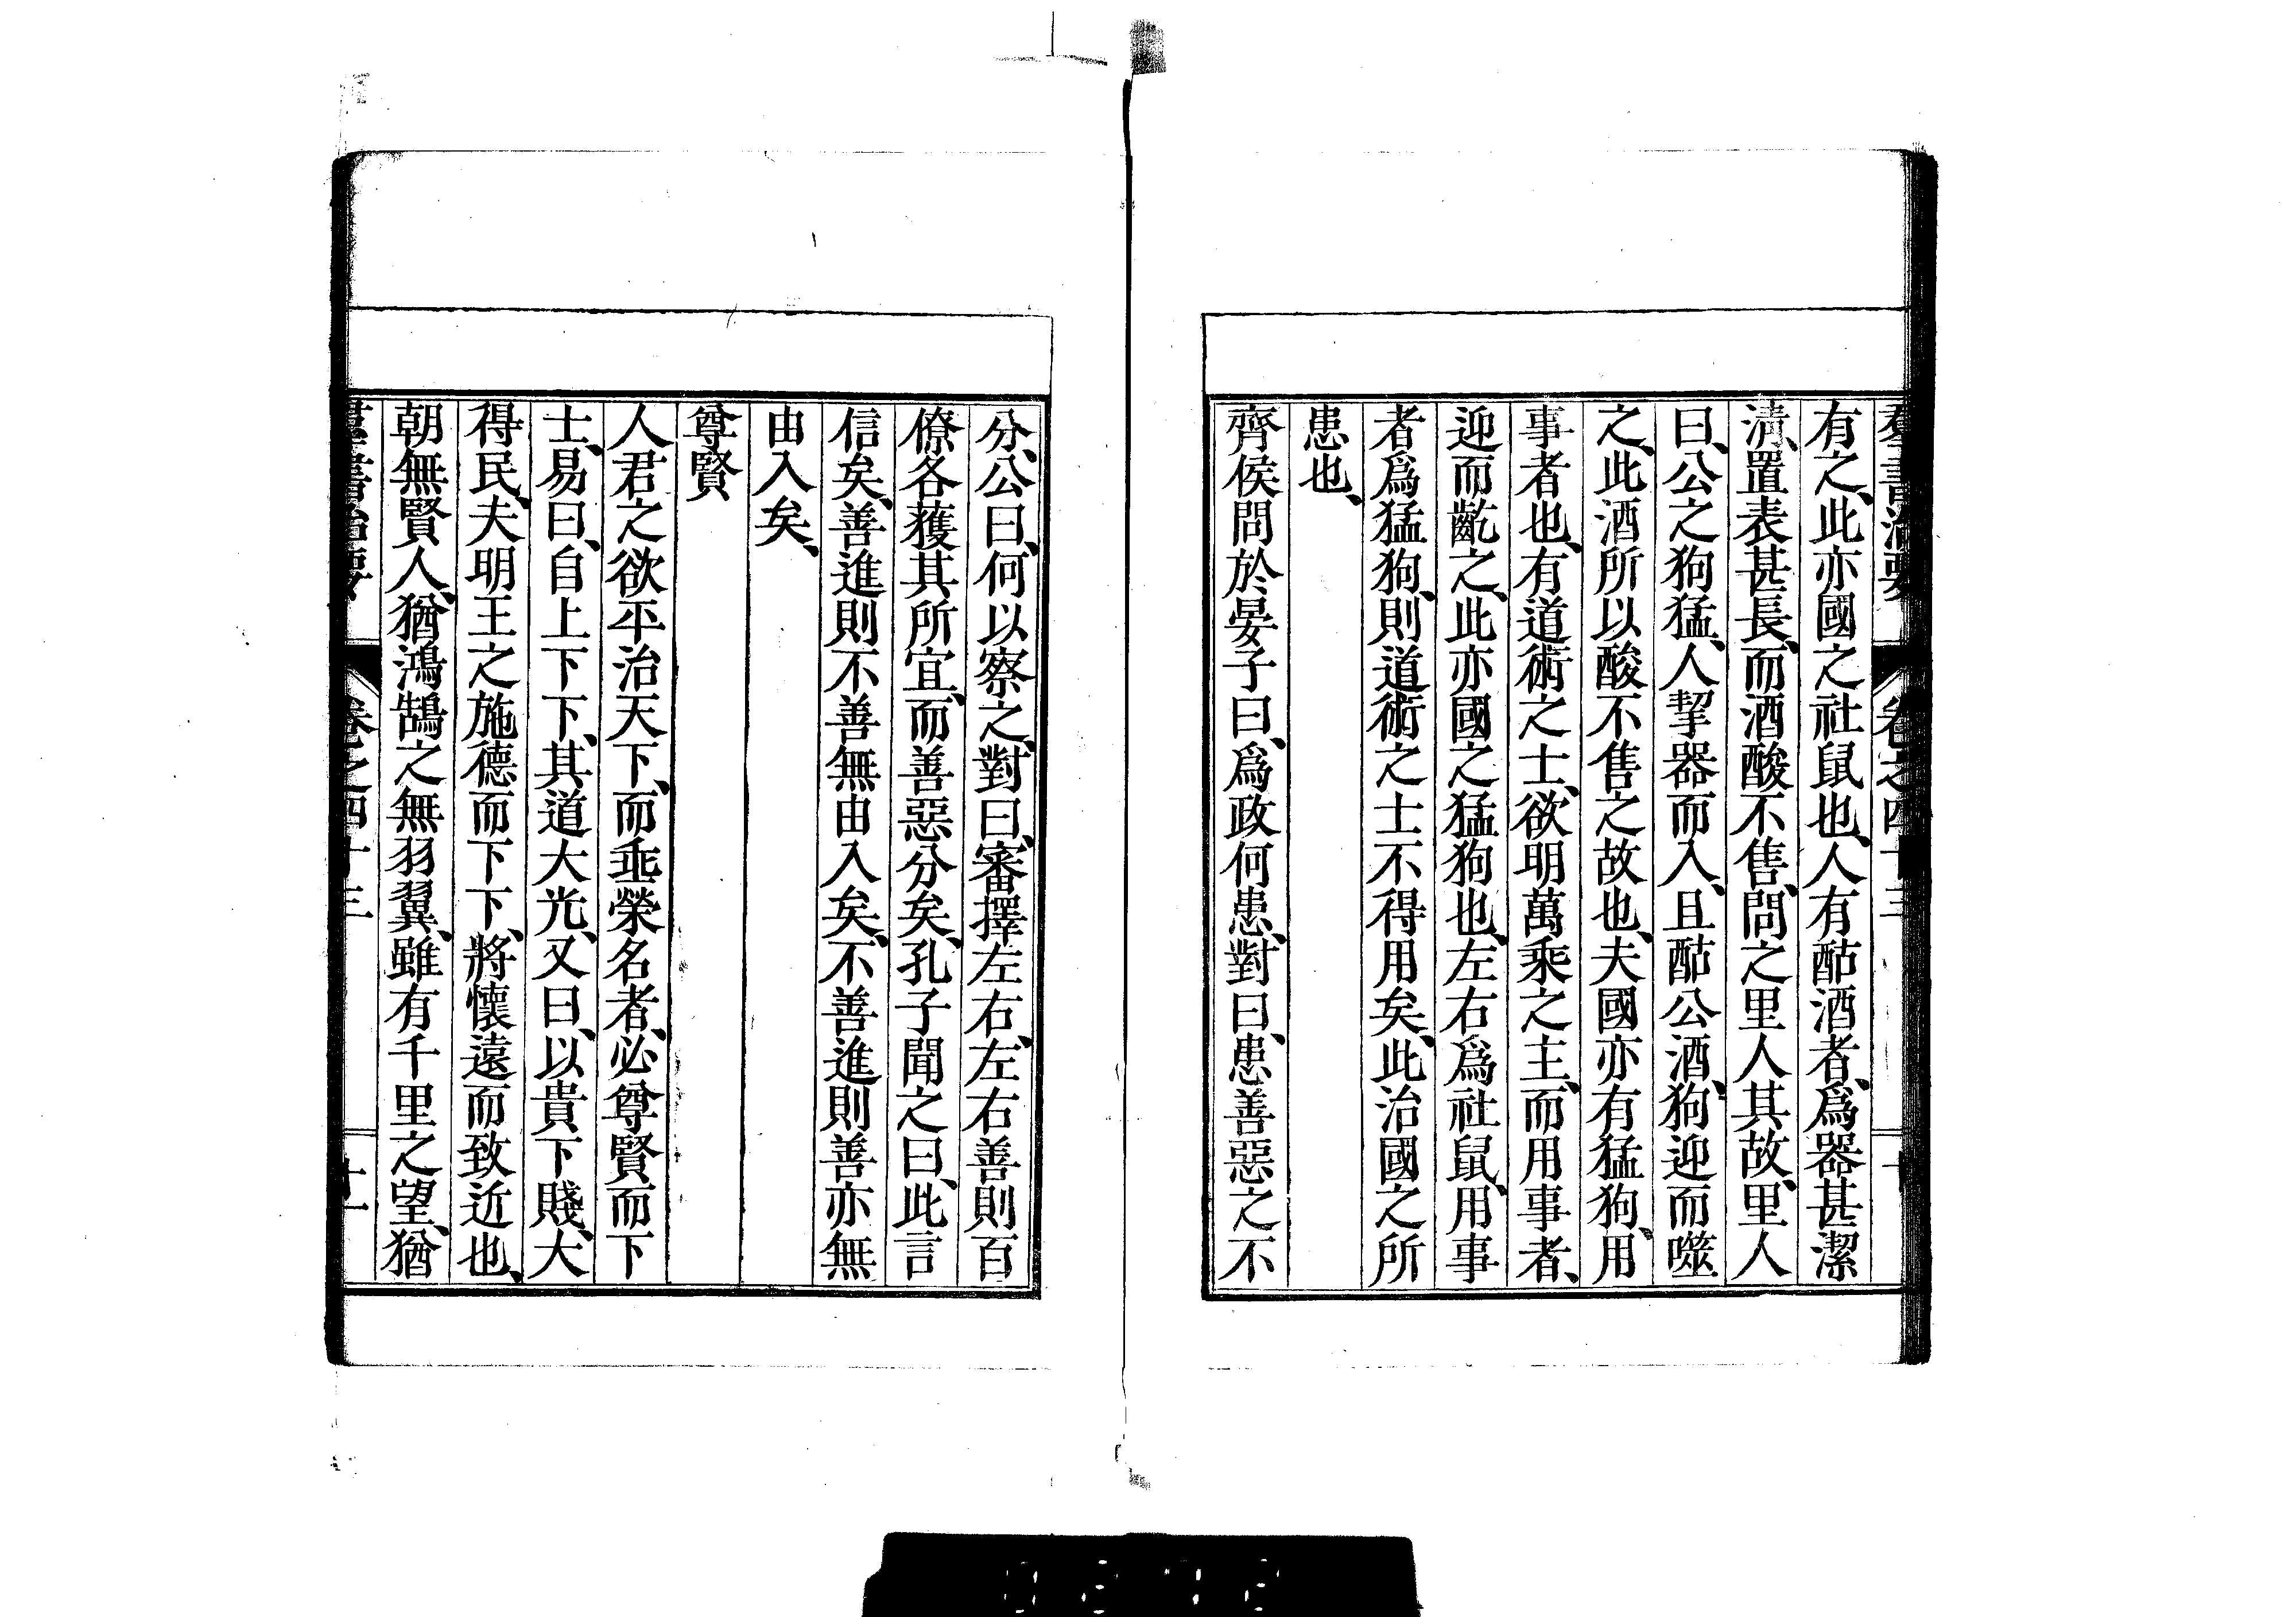 羣書治要 卷之四十三 十
有之、此亦國之社鼠也、人有酤酒者、爲器甚潔
淸、置表甚長、而酒酸不售、問之里人其故、里人
曰、公之狗猛、人挈器而入、且酤公酒、狗迎而噬
之、此酒所以酸不售之故也、夫國亦有猛狗、用
事者也、有道術之士、欲明萬乘之主、而用事者、
迎而齕之、此亦國之猛狗也、左右爲社鼠、用事
者爲猛狗、則道術之士不得用矣、此治國之所
患也、
齊侯問於晏子曰、爲政何患、對曰、患善惡之不
分、公曰、何以察之、對曰、審擇左右、左右善則百
僚各獲其所宜、而善惡分矣、孔子聞之曰、此言
信矣、善進則不善無由入矣、不善進則善亦無
由入矣、
尊賢
人君之欲平治天下、而乖榮名者、必尊賢而下
士、易曰、自上下下、其道大光、又曰、以貴下賤、大
得民、夫明王之施德而下下、將懷遠而致近也、
朝無賢人、猶鴻鵠之無羽翼、雖有千里之望、猶
羣書治要 卷之四十三 十一